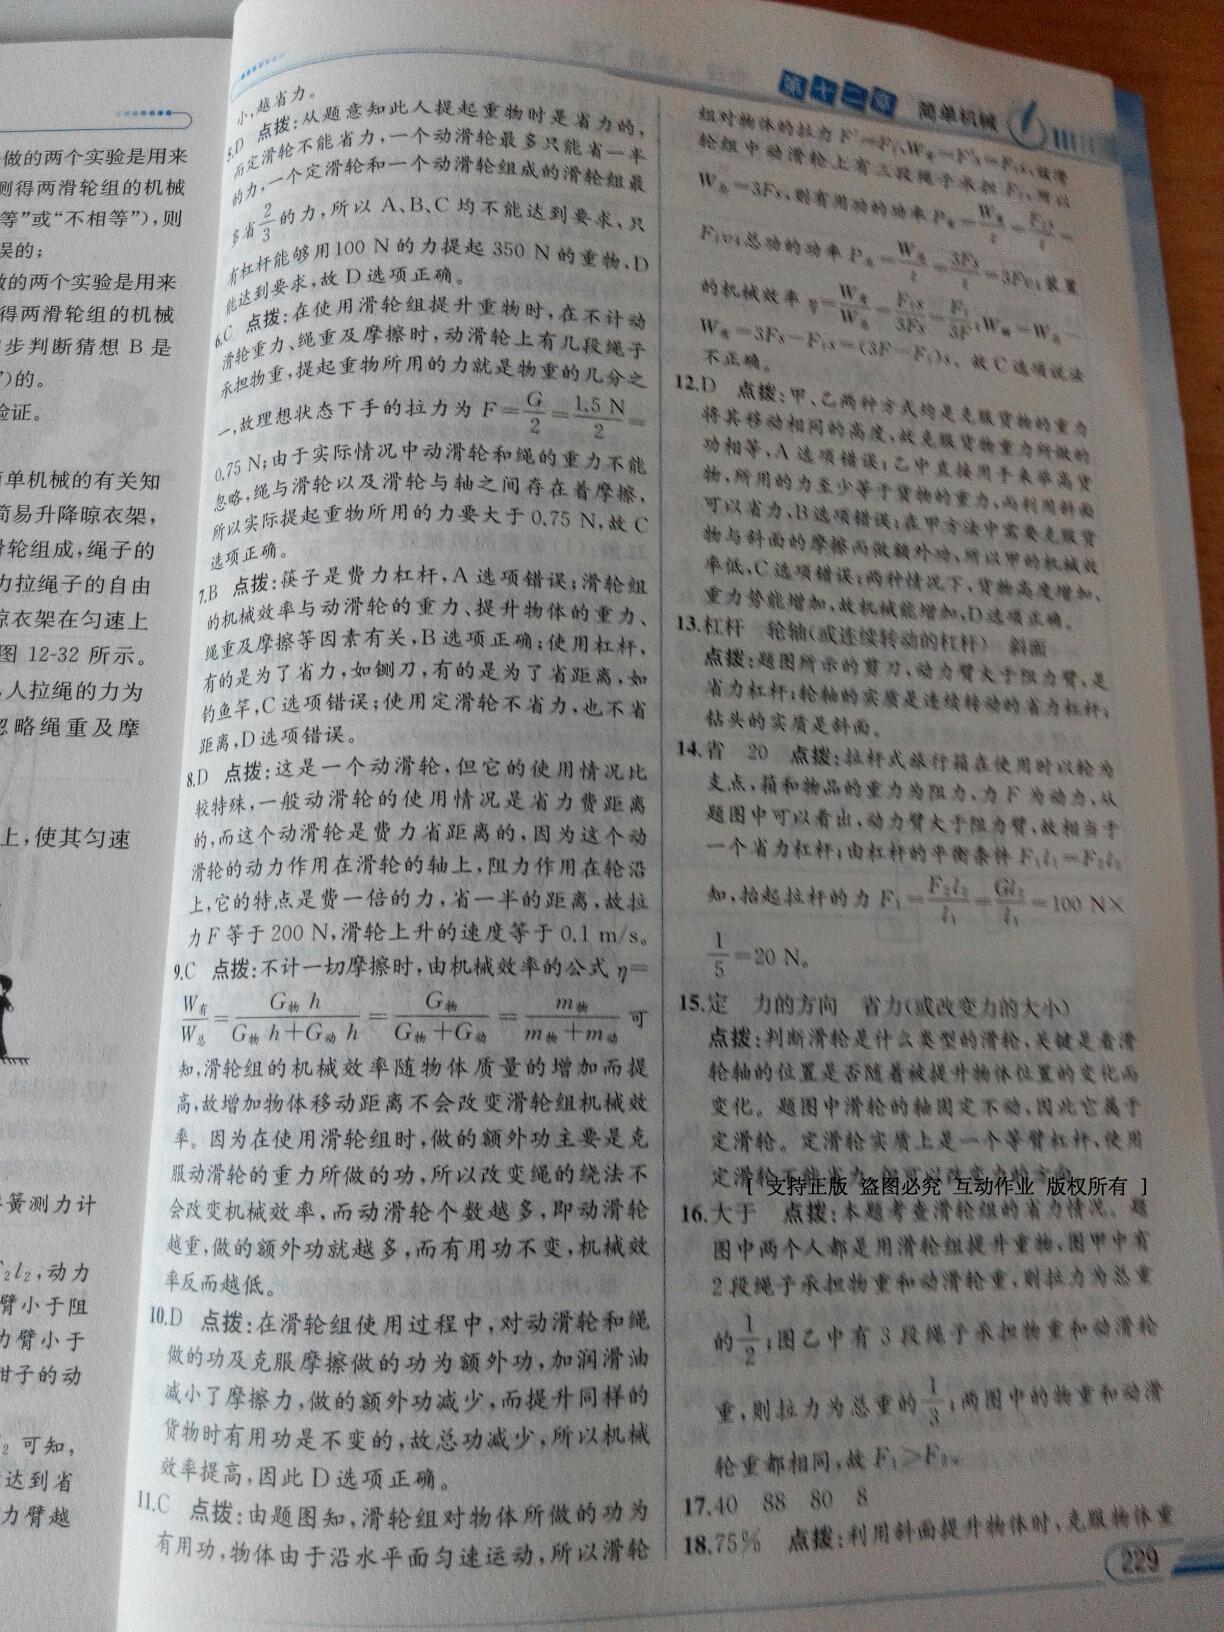 做的两个实验是用来
测得两滑轮组的机械
等”或“不相等”),则
误的;
做的两个实验是用来
得两滑轮组的机械
步判断猜想 B 是
”)的。
验证。
简单机械的有关知
简易升降晾衣架,
滑轮组成,绳子的
力拉绳子的自由
晾衣架在匀速上
图 12-32 所示。
,人拉绳的力为
忽略绳重及摩
上,使其匀速
簧测力计
F₂l₂,动力
臂小于阻
力臂小于
钳子的动
₂ 可知,
达到省
力臂越
小,越省力。
5.D 点拨:从题意知此人提起重物时是省力的,
而定滑轮不能省力,一个动滑轮最多只能省一半
的力,一个定滑轮和一个动滑轮组成的滑轮组最
多省2/3的力,所以 A、B、C 均不能达到要求,只
有杠杆能够用100 N 的力提起 350 N 的重物,D
能达到要求,故 D 选项正确。
6.C 点拨:在使用滑轮组提升重物时,在不计动
滑轮重力、绳重及摩擦时,动滑轮上有几段绳子
承担物重,提起重物所用的力就是物重的几分之
一,故理想状态下手的拉力为 F=G/2=1.5 N/2=
0.75 N;由于实际情况中动滑轮和绳的重力不能
忽略,绳与滑轮以及滑轮与轴之间存在着摩擦,
所以实际提起重物所用的力要大于 0.75 N,故 C
选项正确。
7.B 点拨:筷子是费力杠杆,A 选项错误;滑轮组
的机械效率与动滑轮的重力、提升物体的重力、
绳重及摩擦等因素有关,B选项正确;使用杠杆,
有的是为了省力,如铡刀,有的是为了省距离,如
钓鱼竿,C 选项错误;使用定滑轮不省力,也不省
距离,D选项错误。
8.D 点拨:这是一个动滑轮,但它的使用情况比
较特殊,一般动滑轮的使用情况是省力费距离
的,而这个动滑轮是费力省距离的,因为这个动
滑轮的动力作用在滑轮的轴上,阻力作用在轮沿
上,它的特点是费一倍的力,省一半的距离,故拉
力 F 等于 200 N,滑轮上升的速度等于 0.1 m/s。
9.C 点拨:不计一切摩擦时,由机械效率的公式 η=
W有/W总=G物 h/(G物 h+G动 h)=G物/(G物+G动)=m物/(m物+m动) 可
知,滑轮组的机械效率随物体质量的增加而提
高,故增加物体移动距离不会改变滑轮组机械效
率。因为在使用滑轮组时,做的额外功主要是克
服动滑轮的重力所做的功,所以改变绳的绕法不
会改变机械效率,而动滑轮个数越多,即动滑轮
越重,做的额外功就越多,而有用功不变,机械效
率反而越低。
10.D 点拨:在滑轮组使用过程中,对动滑轮和绳
做的功及克服摩擦做的功为额外功,加润滑油
减小了摩擦力,做的额外功减少,而提升同样的
货物时有用功是不变的,故总功减少,所以机械
效率提高,因此 D 选项正确。
11.C 点拨:由题图知,滑轮组对物体所做的功为
有用功,物体由于沿水平面匀速运动,所以滑轮
第十二章 简单机械
组对物体的拉力 F′=F₁,W有=F′s=F₁s,该滑
轮组中动滑轮上有三段绳子承担 F₁,所以
W总=3Fs,则有用功的功率 P有=W有/t=F₁s/t=
F₁v;总功的功率 P总=W总/t=3Fs/t=3Fv;装置
的机械效率 η=W有/W总=F₁s/3Fs=F₁/3F;W额=W总-
W有=3Fs-F₁s=(3F-F₁)s。故 C 选项说法
不正确。
12.D 点拨:甲、乙两种方式均是克服货物的重力
将其移动相同的高度,故克服货物重力所做的
功相等,A 选项错误;乙中直接用手来举高货
物,所用的力至少等于货物的重力,而利用斜面
可以省力,B选项错误;在甲方法中需要克服货
物与斜面的摩擦而做额外功,所以甲的机械效
率低,C选项错误;两种情况下,货物高度增加,
重力势能增加,故机械能增加,D选项正确。
13.杠杆 轮轴(或连续转动的杠杆) 斜面
点拨:题图所示的剪刀,动力臂大于阻力臂,是
省力杠杆;轮轴的实质是连续转动的省力杠杆;
钻头的实质是斜面。
14.省 20 点拨:拉杆式旅行箱在使用时以轮为
支点,箱和物品的重力为阻力,力 F 为动力,从
题图中可以看出,动力臂大于阻力臂,故相当于
一个省力杠杆;由杠杆的平衡条件 F₁l₁=F₂l₂
知,抬起拉杆的力 F₁=F₂l₂/l₁=Gl₂/l₁=100 N×
1/5=20 N。
15.定 力的方向 省力(或改变力的大小)
点拨:判断滑轮是什么类型的滑轮,关键是看滑
轮轴的位置是否随着被提升物体位置的变化而
变化。题图中滑轮的轴固定不动,因此它属于
定滑轮。定滑轮实质上是一个等臂杠杆,使用
定滑轮不能省力,但可以改变力的方向。
[ 支持正版 盗图必究 互动作业 版权所有 ]
16.大于 点拨:本题考查滑轮组的省力情况。题
图中两个人都是用滑轮组提升重物,图甲中有
2 段绳子承担物重和动滑轮重,则拉力为总重
的1/2;图乙中有 3 段绳子承担物重和动滑轮
重,则拉力为总重的1/3;两图中的物重和动滑
轮重都相同,故 F₁>F₂。
17.40 88 80 8
18.75% 点拨:利用斜面提升物体时,克服物体重
229